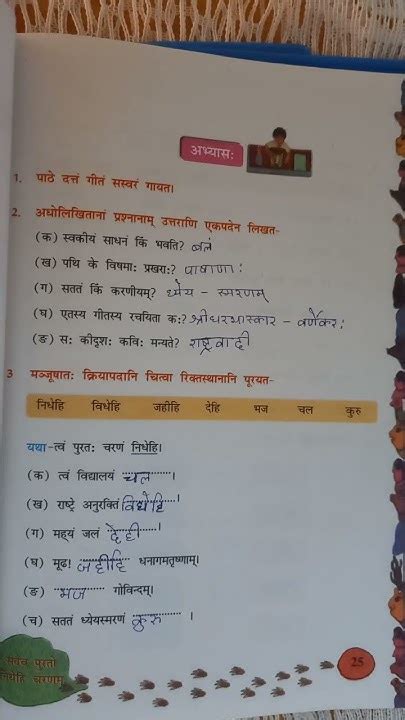 अभ्यासः
1. पाठे दत्तं गीतं सस्वरं गायत।
2. अधोलिखितानां प्रश्नानाम् उत्तराणि एकपदेन लिखत-
(क) स्वकीयं साधनं किं भवति? बलं
(ख) पथि के विषमाः प्रखराः? पाषाणाः
(ग) सततं किं करणीयम्? ध्येय - स्मरणम्
(घ) एतस्य गीतस्य रचयिता कः? श्रीधरभास्कार - वर्णेकरः
(ङ) सः कीदृशः कविः मन्यते? राष्ट्रवादी
3 मञ्जूषातः क्रियापदानि चित्वा रिक्तस्थानानि पूरयत-
निधेहि विधेहि जहीहि देहि भज चल कुरु
यथा-त्वं पुरतः चरणं निधेहि।
(क) त्वं विद्यालयं चल।
(ख) राष्ट्रे अनुरक्तिं विधेहि।
(ग) मह्यं जलं देही।
(घ) मूढ! जहीहि धनागमतृष्णाम्।
(ङ) भज गोविन्दम्।
(च) सततं ध्येयस्मरणं कुरु ।
सदैव पुरतो
निधेहि चरणम्
25